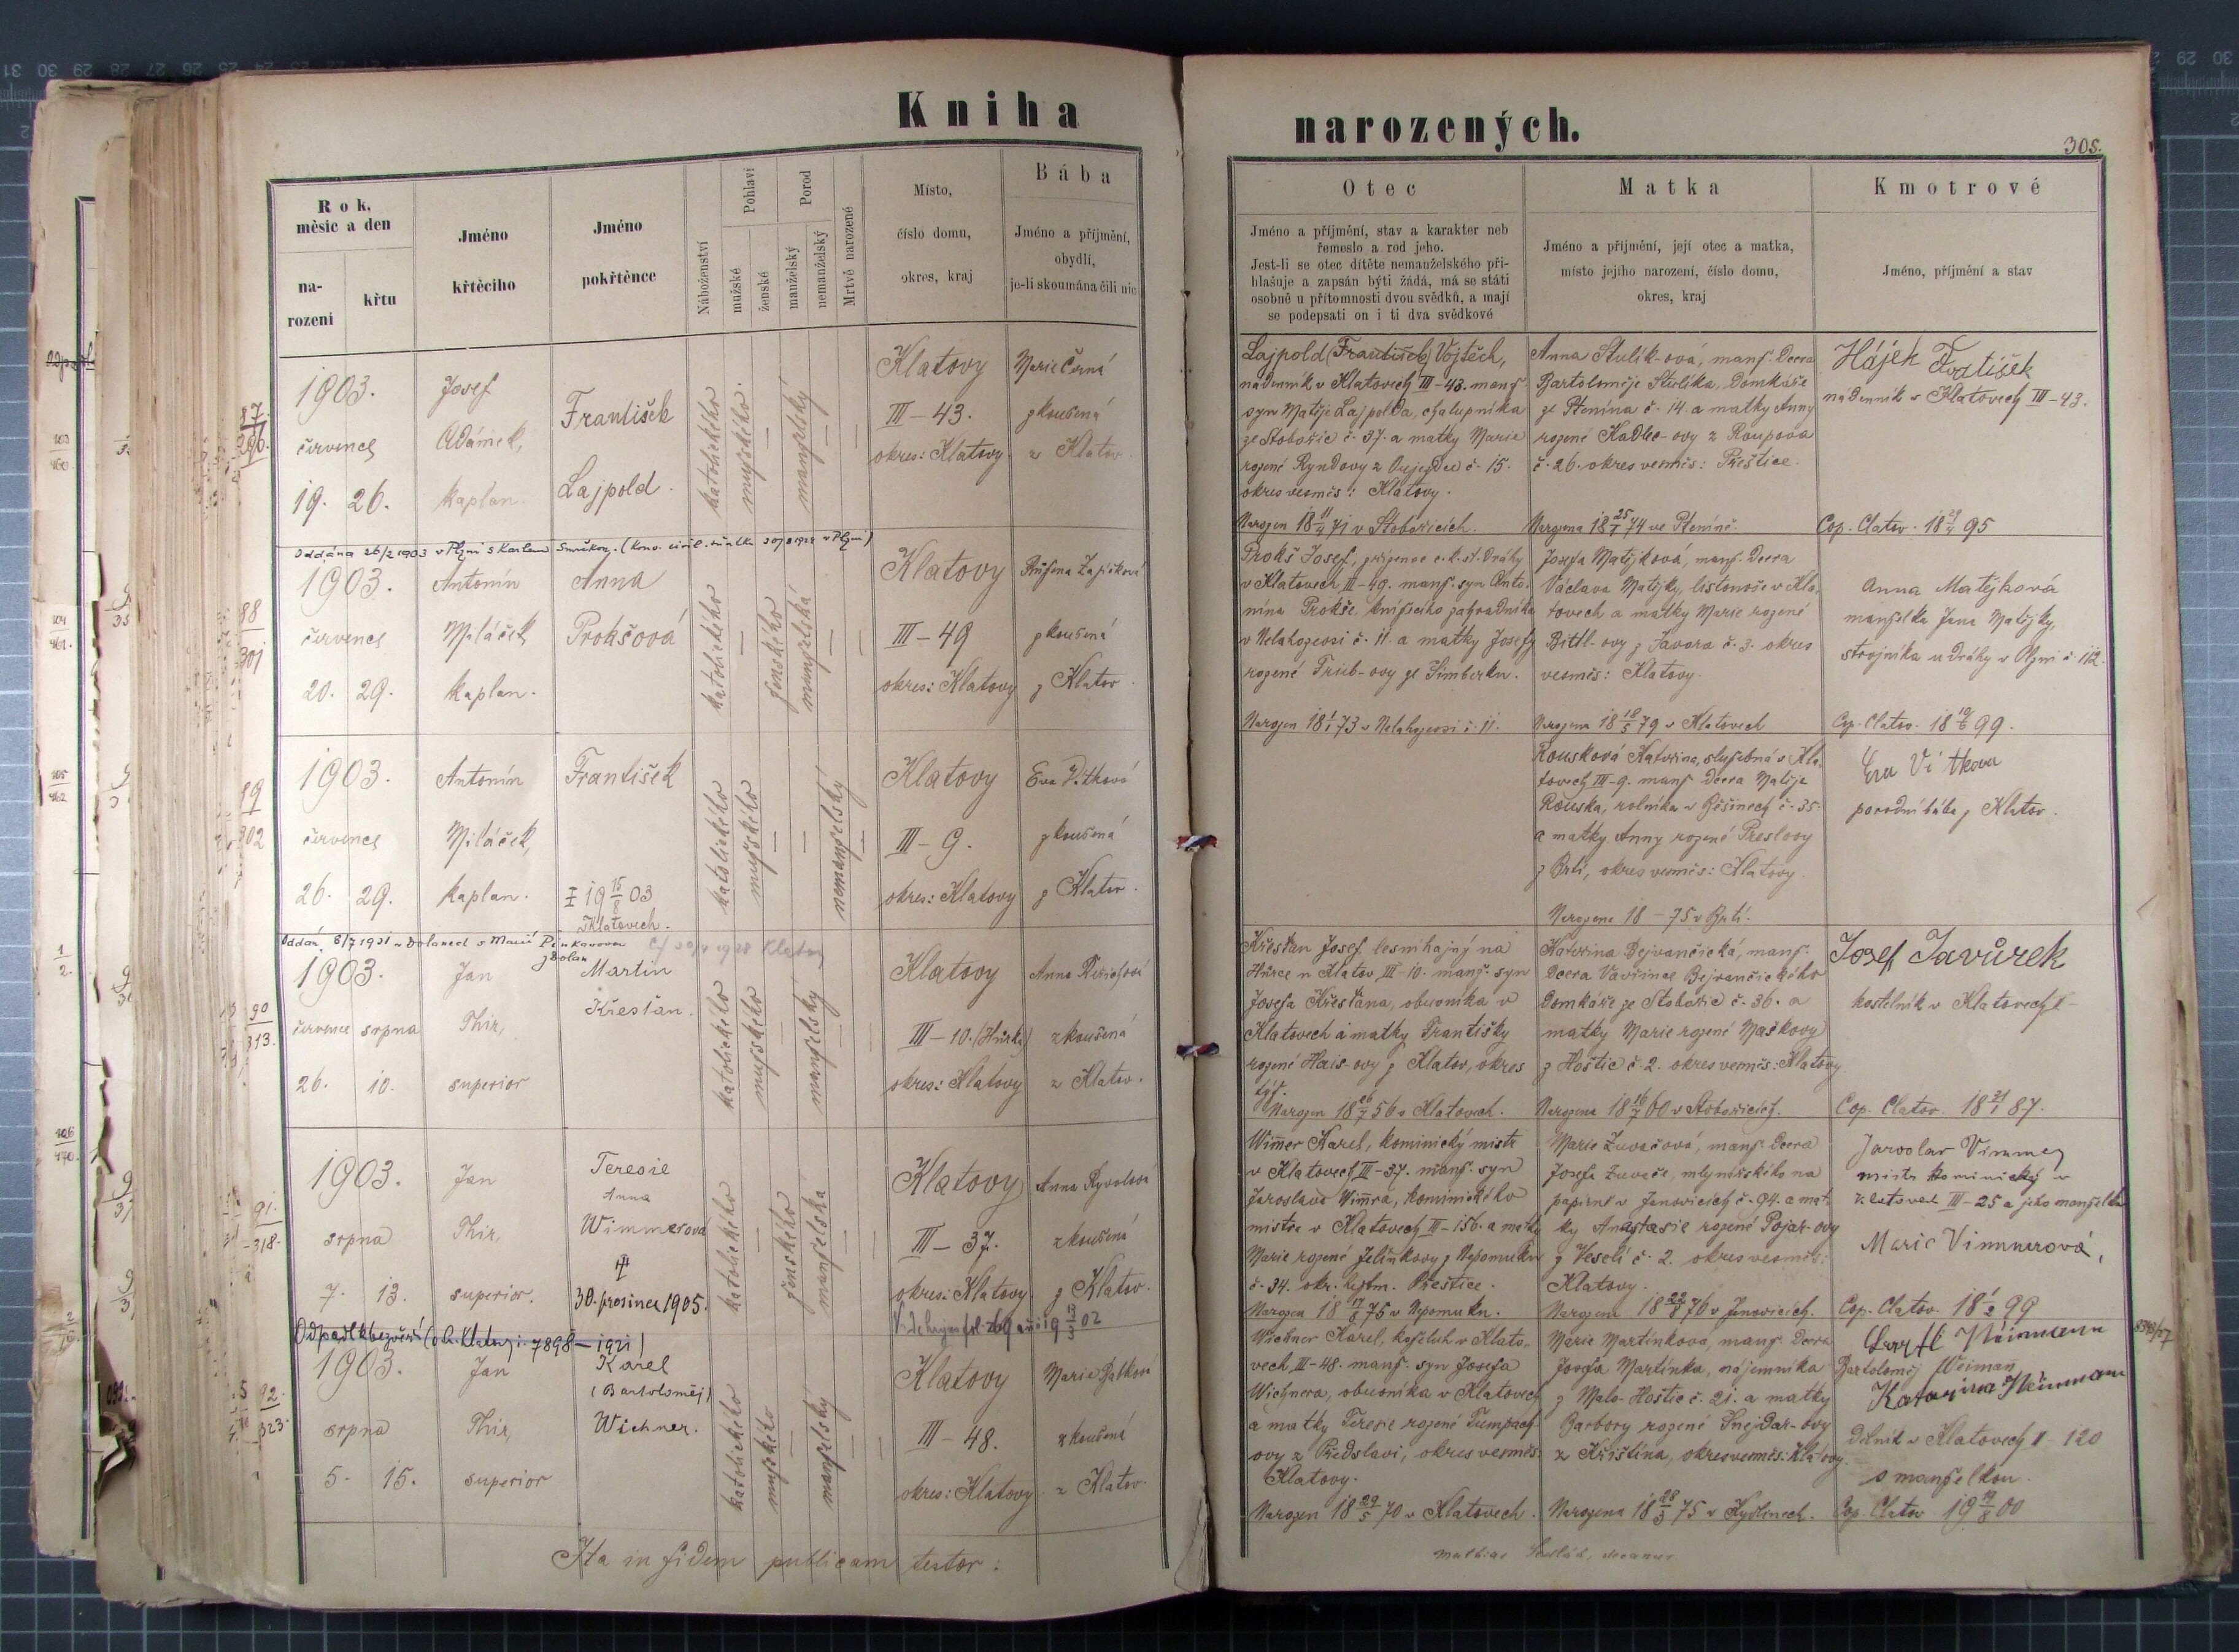 Kniha
narozených.
305.
Rok,
měsíc a den
na-
rozeni
křtu
Jméno
křtěcího
Jméno
pokřtěnce
Náboženství
Pohlaví
mužské
ženské
Porod
manželský
nemanželský
Mrtvě narozené
Místo,
číslo domu,
okres, kraj
Bába
Jméno a příjmění,
obydlí,
je-li zkoumána čili nic
Otec
Jméno a příjmění, stav a karakter neb
řemeslo a rod jeho.
Jest-li se otec dítěte nemanželského při-
hlašuje a zapsán býti žádá, má se státi
osobně u přítomnosti dvou svědků, a mají
se podepsati on i ti dva svědkové
Matka
Jméno a příjmění, její otec a matka,
místo jejího narození, číslo domu,
okres, kraj
Kmotrové
Jméno, příjmění a stav
87.
290.
1903.
července
19. 26.
Josef
Adámek,
kaplan.
František
Lajpold.
katolického
mužského.
manželský
Klatovy
III-43.
okres: Klatovy
Marie Černá
zkoušená
z Klatov.
Lajpold (František) Vojtěch,
nádenník v Klatovech III-43. manž.
syn Matěje Lajpolda, chalupníka
ze Stobořic č. 37. a matky Marie
rozené Ryndovy z Oujezdu č. 15.
okres vesměs: Klatovy.
Narozen 18 11/4 71 v Stobořicích.
Anna Stulík-ová, manž. dcera
Bartoloměje Stulíka, domkáře
ze Ptenína č. 14. a matky Anny
rozené Kadlec-ovy z Roupova
č. 26. okres vesměs: Přeštice.
Narozena 18 25/7 74 ve Pteníně.
Hájek František
nádenník v Klatovech III-43.
Cop. Clatov. 18 28/4 95
Oddána 26/2 1903 v Plzni s Karlem
88
301
1903.
července
20. 29.
Antonín
Miláček,
kaplan.
Anna
Prokšová
katolického
ženského
manželská
Klatovy
III-49
okres: Klatovy
Růžena Zapišková
zkoušená
z Klatov.
Prokš Josef, přízenec c. k. st. dráhy
v Klatovech III-49. manž. syn Anto-
nína Prokše, knížecího zahradníka
v Nelahozevsi č. 11. a matky Josefy
rozené Trieb-ovy ze Šimberku.
Narozen 18 1/1 73 v Nelahozevsi č. 11.
Josefa Matějková, manž. dcera
Václava Matějky, listonoše v Kla-
tovech a matky Marie rozené
Bittl-ovy z Javora č. 3. okres
vesměs: Klatovy.
Narozena 18 18/5 79 v Klatovech
Anna Matějková
manželka Jana Matějky,
strojníka u dráhy v Plzni č. 112.
Cop. Clatov. 18 19/6 99.
89
302
1903.
července
26. 29.
Antonín
Miláček,
kaplan.
František
19 15/8 03
v Klatovech.
katolického
mužského
nemanželský
Klatovy
III-9.
okres: Klatovy
Eva Vítková
zkoušená
z Klatov.
Rousková Kateřina, služebná v Kla-
tovech III-9. manž. dcera Matěje
Rouska, rolníka v Běšinech č. 35.
a matky Anny rozené Preslovy
z Brtí, okres vesměs: Klatovy.
Narozena 18 - 75 v Brtí.
Eva Vítkova
porodní bába z Klatov.
Oddán 8/7 1931 v Dolanech s Marií
z Dolan
90
313.
1903.
července srpna
26. 10.
Jan
Thir,
superior
Martin
Křesťan.
katolického
mužského
manželský
Klatovy
III-10. (Hůrka)
okres: Klatovy
zkoušená
z Klatov.
Křesťan Josef, lesní hajný na
Hůrce u Klatov III-10. manž. syn
Josefa Křesťana, obuvníka v
Klatovech a matky Františky
rozené Hais-ovy z Klatov, okres
týž.
Narozen 18 26/7 56 v Klatovech.
Kateřina Bejvančická, manž.
dcera Vavřince Bejvančického
domkáře ze Stobořic č. 36. a
matky Marie rozené Maškovy
z Hoštic č. 2. okres vesměs: Klatovy
Narozena 18 16/7 60 v Stobořicích.
Josef Javůrek
kostelník v Klatovech I-
Cop. Clatov. 18 31/1 87.
91.
318.
1903.
srpna
7. 13.
Jan
Thir,
superior.
Teresie
Anna
Wimmerová
30. prosince 1905.
katolického
ženského
manželská
Klatovy
III-37.
okres: Klatovy
Anna Ryvolová
zkoušená
z Klatov.
Wimmer Karel, kominický mistr
v Klatovech III-37. manž. syn
Jaroslava Wimmra, kominického
mistra v Klatovech III-156. a matky
Marie rozené Jelínkovy z Nepomuku
č. 34. okr. hejtm. Přeštice.
Narozen 18 17/8 75 v Nepomuku.
Marie Zuvačová, manž. dcera
Josefa Zuvače, mlynářského na
papírně v Janovicích č. 94. a mat-
ky Anastasie rozené Pojar-ovy
z Veselí č. 2. okres vesměs:
Klatovy.
Narozena 18 22/8 76 v Janovicích.
Jaroslav Vimmer
mistr kominický v
Klatovech III-25 a jeho manželka
Marie Vimmerová,
Cop. Clatov. 18 1/2 99
92.
323.
1903.
srpna
5. 15.
Jan
Thir,
superior
Karel
(Bartoloměj)
Wichner.
katolického
mužského
manželský
Klatovy
III-48.
okres: Klatovy
Marie
zkoušená
z Klatov.
Wichner Karel, koželuh v Klato-
vech III-48. manž. syn Josefa
Wichnera, obuvníka v Klatovech
a matky Teresie rozené Tumpach-
ovy z Předslavi, okres vesměs:
Klatovy.
Narozen 18 29/5 70 v Klatovech.
Marie Martínkova, manž. dcera
Josefa Martínka, nájemníka
z Malo-Hoštic č. 21. a matky
Barbory rozené Šnejdar-ovy
z Křištína, okres vesměs: Klatovy.
Narozena 18 28/3 75 v Kydlinech.
Bartoloměj Weiman
dělník v Klatovech II-120
s manželkou.
Cop. Clatov 19 19/8 00
Ita in fidem publicam testor: